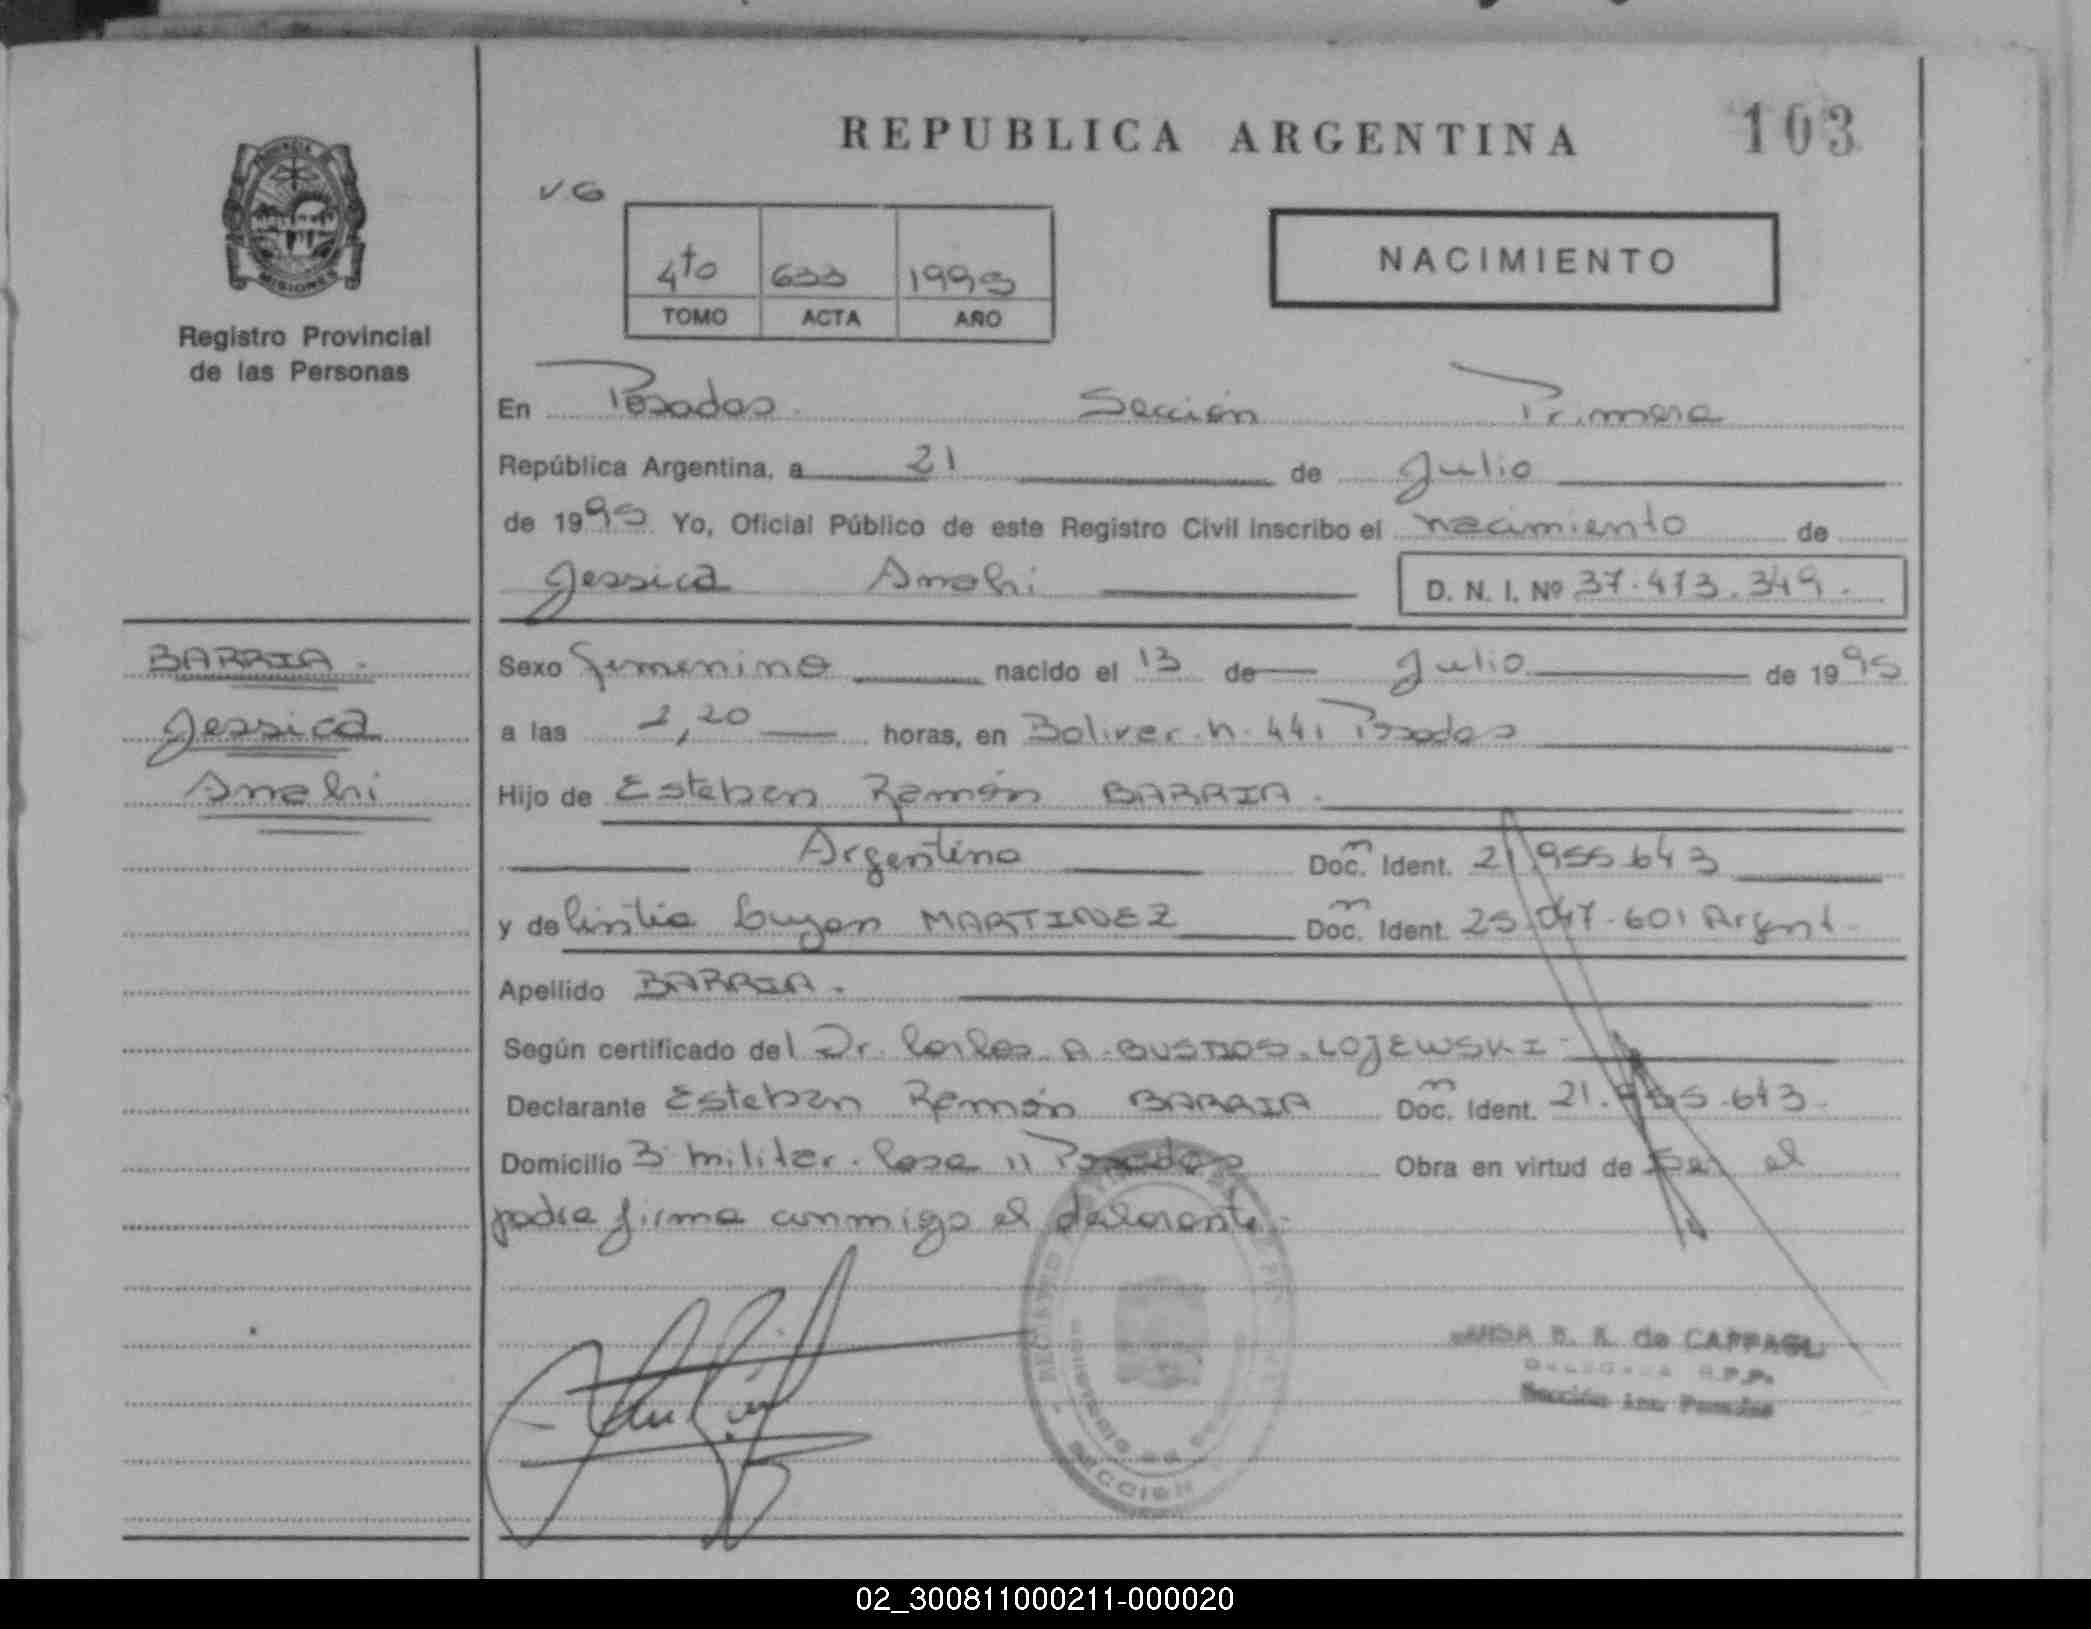 REPUBLICA ARGENTINA
103
PROVINCIA
MISIONES
Registro Provincial
de las Personas
VG
4to 633 1995
TOMO ACTA AÑO
NACIMIENTO
En Posadas Sección Primera
República Argentina, a 21 de Julio
de 1995 Yo, Oficial Público de este Registro Civil inscribo el nacimiento de
Jessica Anahi D. N. I. Nº 37.473.349.
BARRIA.
Jessica
Anahi
Sexo femenino nacido el 13 de Julio de 1995
a las 2,20 horas, en Bolivar n. 441 Posadas
Hijo de Esteban Ramón BARRIA.
Argentino Doc. Ident. 21.955.643
y de Cintia Luján MARTINEZ Doc. Ident. 25.047.601 Argent.
Apellido BARRIA.
Según certificado del Dr. Carlos A. BUSTOS. LOJEWSKI
Declarante Esteban Ramón BARRIA Doc. Ident. 21.955.643.
Domicilio B militar. Casa 11 Posadas Obra en virtud de Ser el
padre firma conmigo el declarante.
B. R. de
R.P.P.
Sección 1ra. Posadas
SECCION
02_300811000211-000020